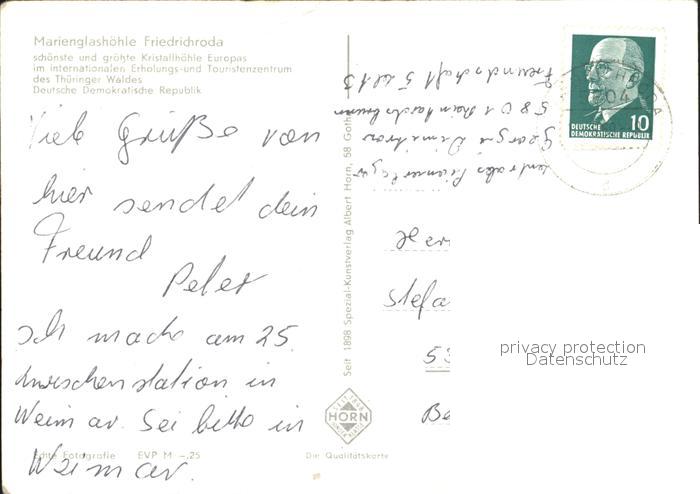 Marienglashöhle Friedrichroda
schönste und größte Kristallhöhle Europas
im internationalen Erholungs-und Touristenzentrum
des Thüringer Waldes
Deutsche Demokratische Republik
Viele Grüße von
hier sendet dein
Freund
Peter
Ich mache am 25.
zwischenstation in
Weimar. Sei bitte in
Weimar.
Echte Fotografie EVP M –,25
Seit 1898 Spezial-Kunstverlag Albert Horn, 58 Gotha
SEIT 1898
HORN
Die Qualitätskarte
Zentrales Pionierlager
Georgi Dimitrow
5801 Reinhardsbrunn
Freundschaft 5
DEUTSCHE
DEMOKRATISCHE REPUBLIK
10
Her
Stefa
53
privacy protection
Datenschutz